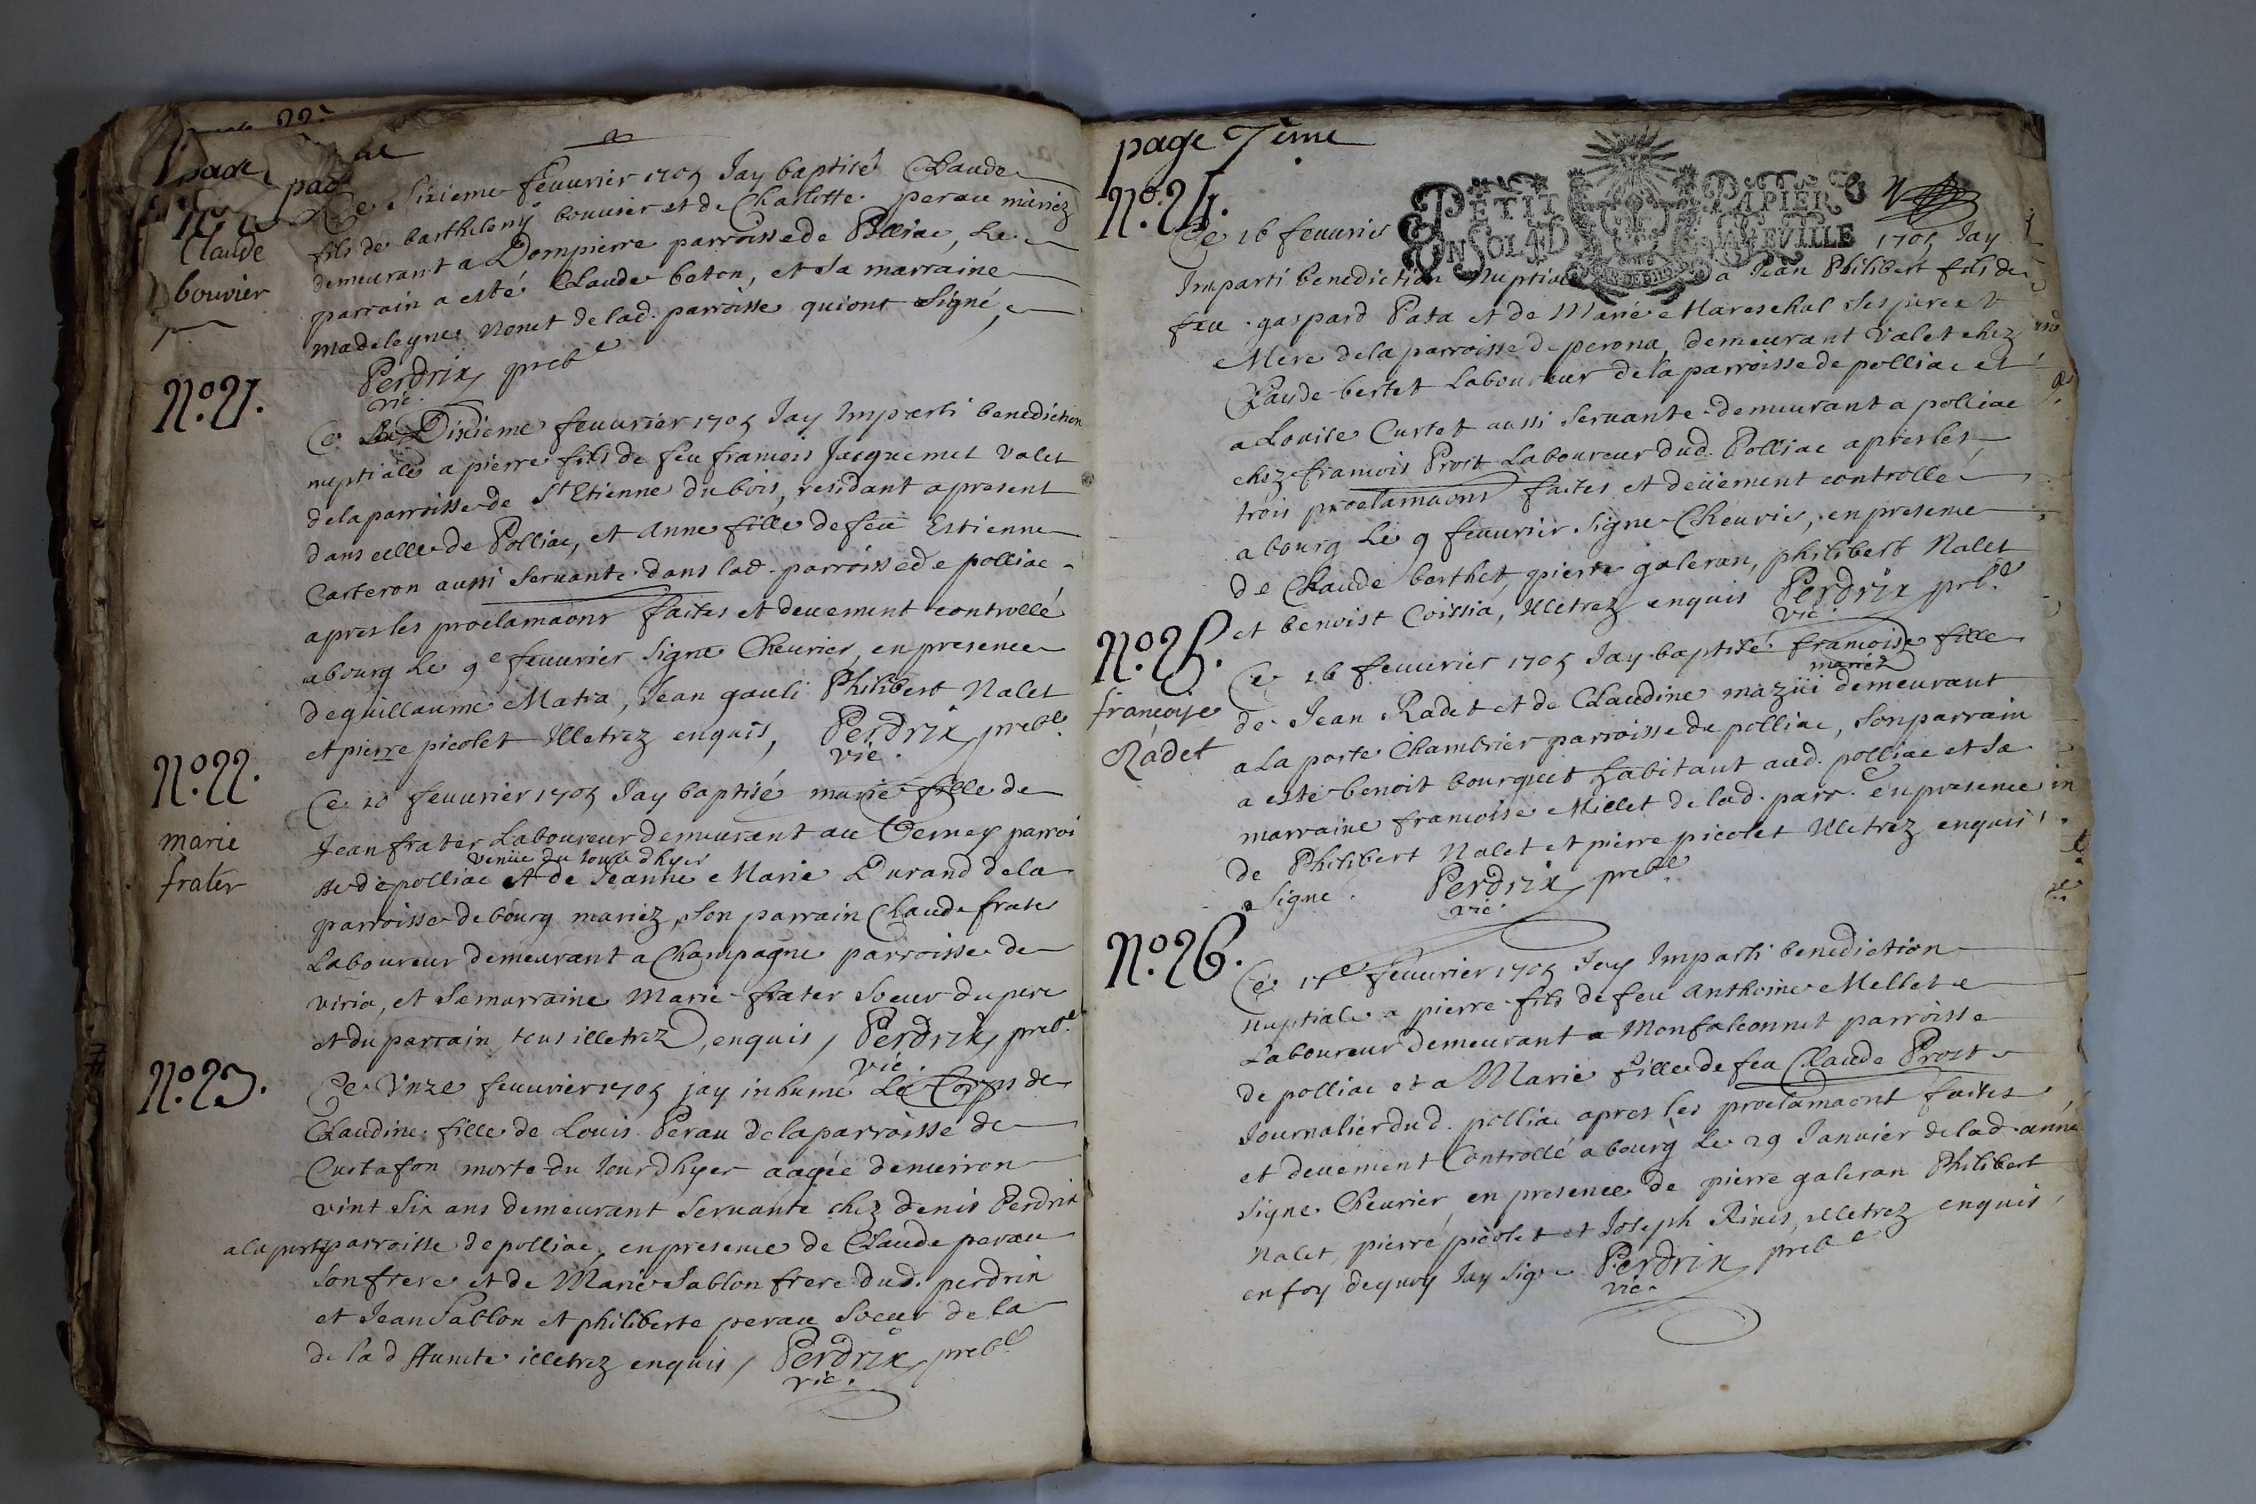 page
Claude
bouvier
Ce Sixieme feuurier 1705 Jay baptisé Claude
fils de barthelemy bouuier et de Charlotte perau mariez
demeurant a Dompierre parroisse de Polliac, Le
parrain a esté Claude beton, et sa marraine
madeleyne Nonet de lad. parroisse qui ont Signé,
Perdrix preb.e
vic.
N.o 21.
Ce Dixieme feuurier 1705 Jay Imparti benediction
nuptiale a pierre fils de feu francois Jacquemet valet
de la parroisse de St Etienne du bois, residant a present
dans celle de Polliac, et Anne fille de feu Estienne
Carteron aussi Seruante dans lad. parroisse de polliac
apres les proclamaons faites et deuement controllé
a bourg Le 9e feuurier Signe Cheurier, en presence
de guillaume Matra, Jean gauli Philibert Nalet
et pierre picolet Illetrez enquis, Perdrix preb.e
vic.
N.o 22.
marie
frater
Ce 10 feuurier 1705 Jay baptisé marie fille de
Jean frater Laboureur demeurant au Verney parroi
venüe du jour d'hyer
sse de polliac et de Jeanne Marie Durand de la
parroisse de bourg mariez, Son parrain Claude frater
Laboureur demeurant a Champagne parroisse de
viria, et Sa marraine Marie frater Soeur du pere
et du parrain tous illetrez, enquis, Perdrix preb.e
vic.
N.o 23.
Ce Vnze feuurier 1705 jay inhumé Le Corps de
Claudine fille de Louis Perau de la parroisse de
Curtafon morte du Jour dhyer aagée denuiron
vint Six ans demeurant Seruante chez denis Perdrix
a la parroisse de polliac, en presence de Claude perau
son frere et de Marie Sablon frere dud. perdrix
et Jean Sablon et philiberte perau Soeur de la
de lad ffunte illetrez enquis, Perdrix preb.e
vic.
page 7eme
N.o 24.
PETIT PAPIER
UN SOL 4 D LA FEVILLE
Ce 16 feuurier 1705 Jay
Imparti benediction Nuptiale a Jean Philibert fils de
feu gaspard Pata et de Marie Mareschal Ses pere et
Mere de la parroisse de perona, demeurant Valet chez
Claude bertet Laboureur de la parroisse de polliac et
a Louise Curtet aussi Seruante demeurant a polliac
chez francois Prost Laboureur dud. Polliac apres les
trois proclamaons faites et deüement controllé
a bourg Le 9 feuurier Signe Cheurier, en presence
de Claude berthet, pierre galeran, philibert Nalet
et benoist Coissia, Illetrez enquis Perdrix preb.e
vic.
N.o 25.
francoise
Radet
Ce 16 feuurier 1705 Jay baptisé francoise fille
mariez
de Jean Radet et de Claudine maziii demeurant
a La porte Chambrier parroisse de polliac, Son parrain
a esté benoit bourquet habitant aud. polliac et Sa
marraine francoise Millet de lad. parr. en presence
de Philibert Nalet et pierre picolet Illetrez enquis
Signe. Perdrix preb.e
vic.
N.o 26.
Ce 17e feuurier 1705 Jay Imparti benediction
nuptiale a pierre fils de feu Anthoine Mellet
Laboureur demeurant a Monfalconnet parroisse
de polliac et a Marie fille de feu Claude Prost
Journalier dud. polliac apres les proclamaons faites
et deuement Controllé a bourg Le 29 Januier de lad. année
Signe Cheurier, en presence de pierre galeran Philibert
Nalet, pierre picolet et Joseph Riues, illetrez enquis,
en foy de quoy Jay Signe Perdrix preb.e
vic.